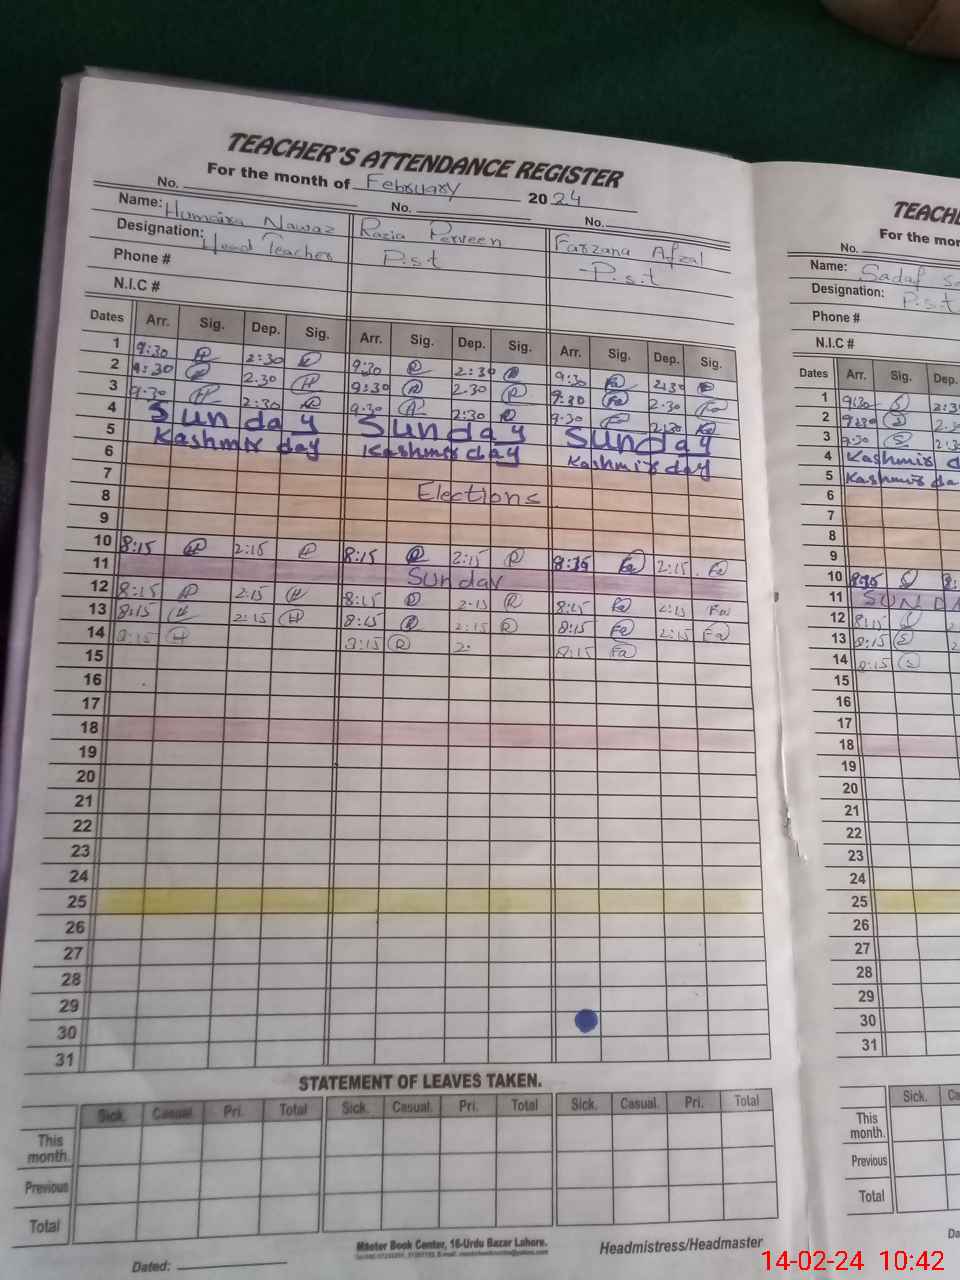 TEACHER'S ATTENDANCE REGISTER
For the month of February 2024
No. No. No.
Name: Humaira Nawaz Razia Perveen Farzana Afzal
Designation: Head Teacher P.s.t P.s.t
Phone #
N.I.C #
Dates Arr. Sig. Dep. Sig. Arr. Sig. Dep. Sig. Arr. Sig. Dep. Sig.
1 9:30 2:30 9:30 2:30 9:30 2:30
2 9:30 2.30 9:30 2.30 9:30 2.30
3 9:30 2:30 9:30 2:30 9:30 2:30
4 Sunday Sunday Sunday
5 Kashmir day Kashmir day Kashmir day
6
7
8 Elections
9
10 8:15 2:15 8:15 2:15 2:15
11 Sunday
12 8:15 2:15 8:15 2:15 8:15 2:15
13 8:15 2:15 8:15 2:15 8:15 Fa 2:15 Fa
14 8:15 H 8:15 R 2: 8:15 Fa
15
16
17
18
19
20
21
22
23
24
25
26
27
28
29
30
31
STATEMENT OF LEAVES TAKEN.
Sick. Casual. Pri. Total Sick. Casual. Pri. Total Sick. Casual. Pri. Total
This month.
Previous
Total
Master Book Center, 16-Urdu Bazar Lahore.
Dated: Headmistress/Headmaster
TEACHE
For the mon
No.
Name: Sadaf
Designation: P.s.t
Phone #
N.I.C #
Dates Arr. Sig. Dep.
1 9:30 S
2 9:30 S
3 9:30 S
4 Kashmir d
5 Kashmir da
6
7
8
9
10
11 SUNDA
12 8:15
13 8:15 S
14 8:15 S
15
16
17
18
19
20
21
22
23
24
25
26
27
28
29
30
31
Sick. Ca
This month.
Previous
Total
Da
14-02-24 10:42